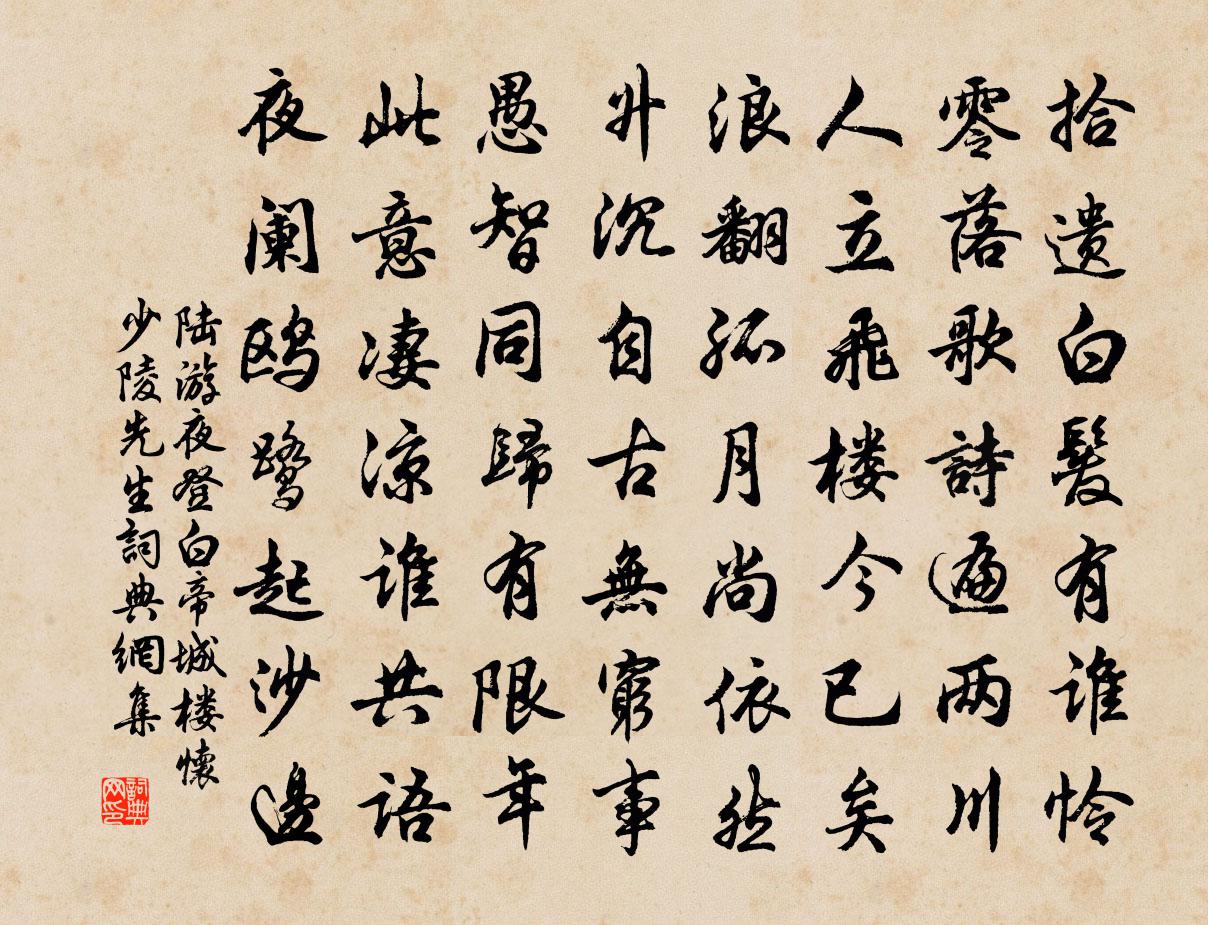 拾遗白髮有谁怜
零落歌詩遍两川
人立飛楼今已矣
浪翻孤月尚依然
升沉自古無窮事
愚智同歸有限年
此意凄涼谁共語
夜阑鸥鹭起沙邊
陆游夜登白帝城楼懷
少陵先生詞典網集
詞典
网印